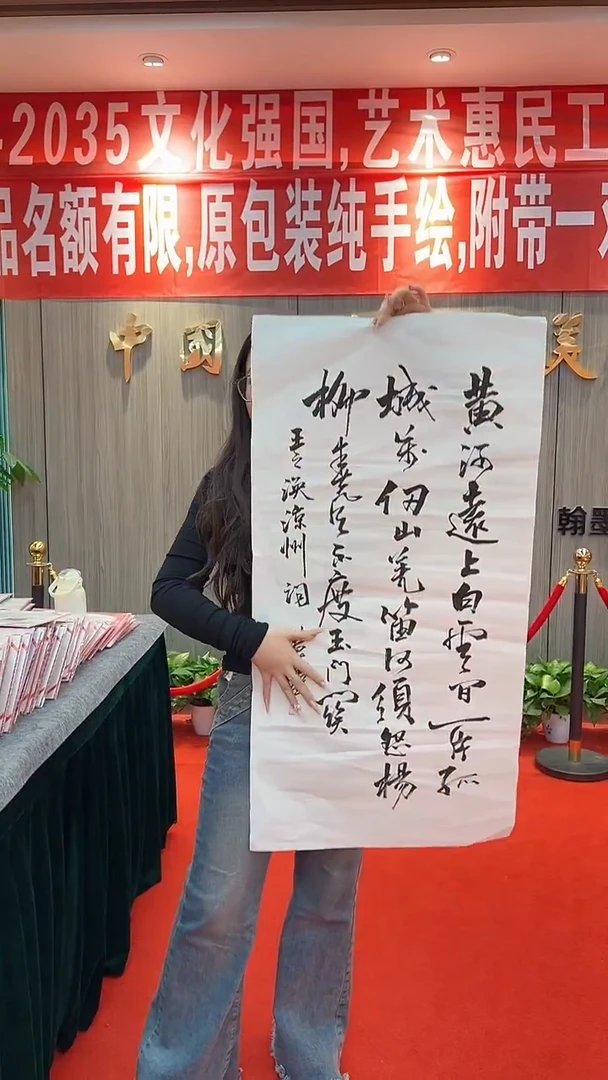 -2035文化强国,艺术惠民工
品名额有限,原包装纯手绘,附带一
中国
美
翰墨
黄河遠上白雲間一片孤
城萬仞山羌笛何須怨楊
柳春風不度玉門關
王之渙涼州詞